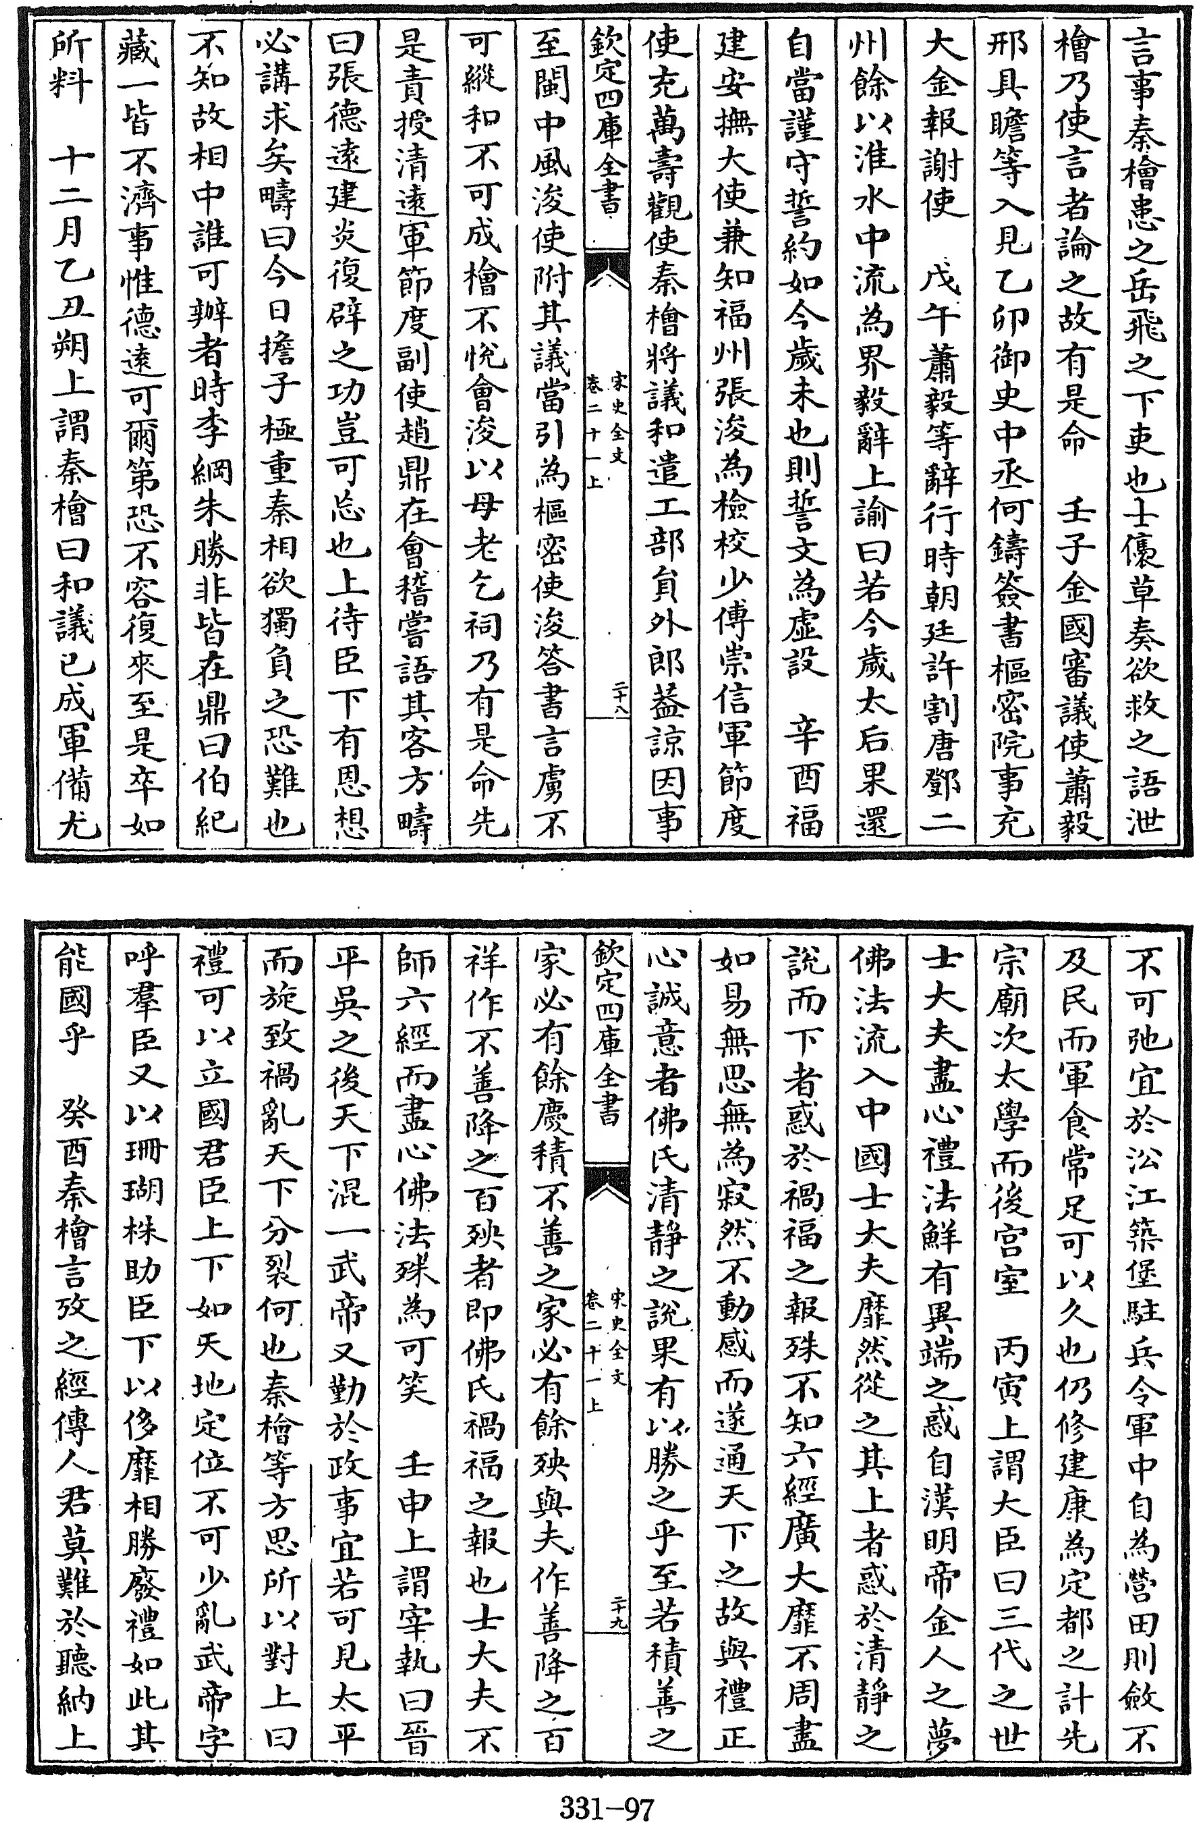 言事秦檜患之岳飛之下吏也士㒟草奏欲救之語泄
檜乃使言者論之故有是命　壬子金國審議使蕭毅
邢具瞻等入見乙卯御史中丞何鑄簽書樞密院事充
大金報謝使　戊午蕭毅等辭行時朝廷許割唐鄧二
州餘以淮水中流為界毅辭上諭曰若今歲太后果還
自當謹守誓約如今歲未也則誓文為虛設　辛酉福
建安撫大使兼知福州張浚為檢校少傅崇信軍節度
使充萬壽觀使秦檜將議和遣工部貟外郎葢諒因事
欽定四庫全書
宋史全文
卷二十一上
二十八
至閩中風浚使附其議當引為樞密使浚答書言虜不
可縱和不可成檜不悅會浚以母老乞祠乃有是命先
是責授清遠軍節度副使趙鼎在會稽嘗語其客方疇
曰張德遠建炎復辟之功豈可忘也上待臣下有恩想
必講求矣疇曰今日擔子極重秦相欲獨負之恐難也
不知故相中誰可辦者時李綱朱勝非皆在鼎曰伯紀
藏一皆不濟事惟德遠可爾第恐不容復來至是卒如
所料　十二月乙丑朔上謂秦檜曰和議已成軍備尤
不可弛宜於沿江築堡駐兵令軍中自為營田則斂不
及民而軍食常足可以久也仍修建康為定都之計先
宗廟次太學而後宮室　丙寅上謂大臣曰三代之世
士大夫盡心禮法鮮有異端之惑自漢明帝金人之夢
佛法流入中國士大夫靡然從之其上者惑於清靜之
說而下者惑於禍福之報殊不知六經廣大靡不周盡
如易無思無為寂然不動感而遂通天下之故與禮正
心誠意者佛氏清靜之說果有以勝之乎至若積善之
欽定四庫全書
宋史全文
卷二十一上
二十九
家必有餘慶積不善之家必有餘殃與夫作善降之百
祥作不善降之百殃者即佛氏禍福之報也士大夫不
師六經而盡心佛法殊為可笑　壬申上謂宰執曰晉
平吳之後天下混一武帝又勤於政事宜若可見太平
而旋致禍亂天下分裂何也秦檜等方思所以對上曰
禮可以立國君臣上下如天地定位不可少亂武帝字
呼羣臣又以珊瑚株助臣下以侈靡相勝廢禮如此其
能國乎　癸酉秦檜言攷之經傳人君莫難於聽納上
331-97